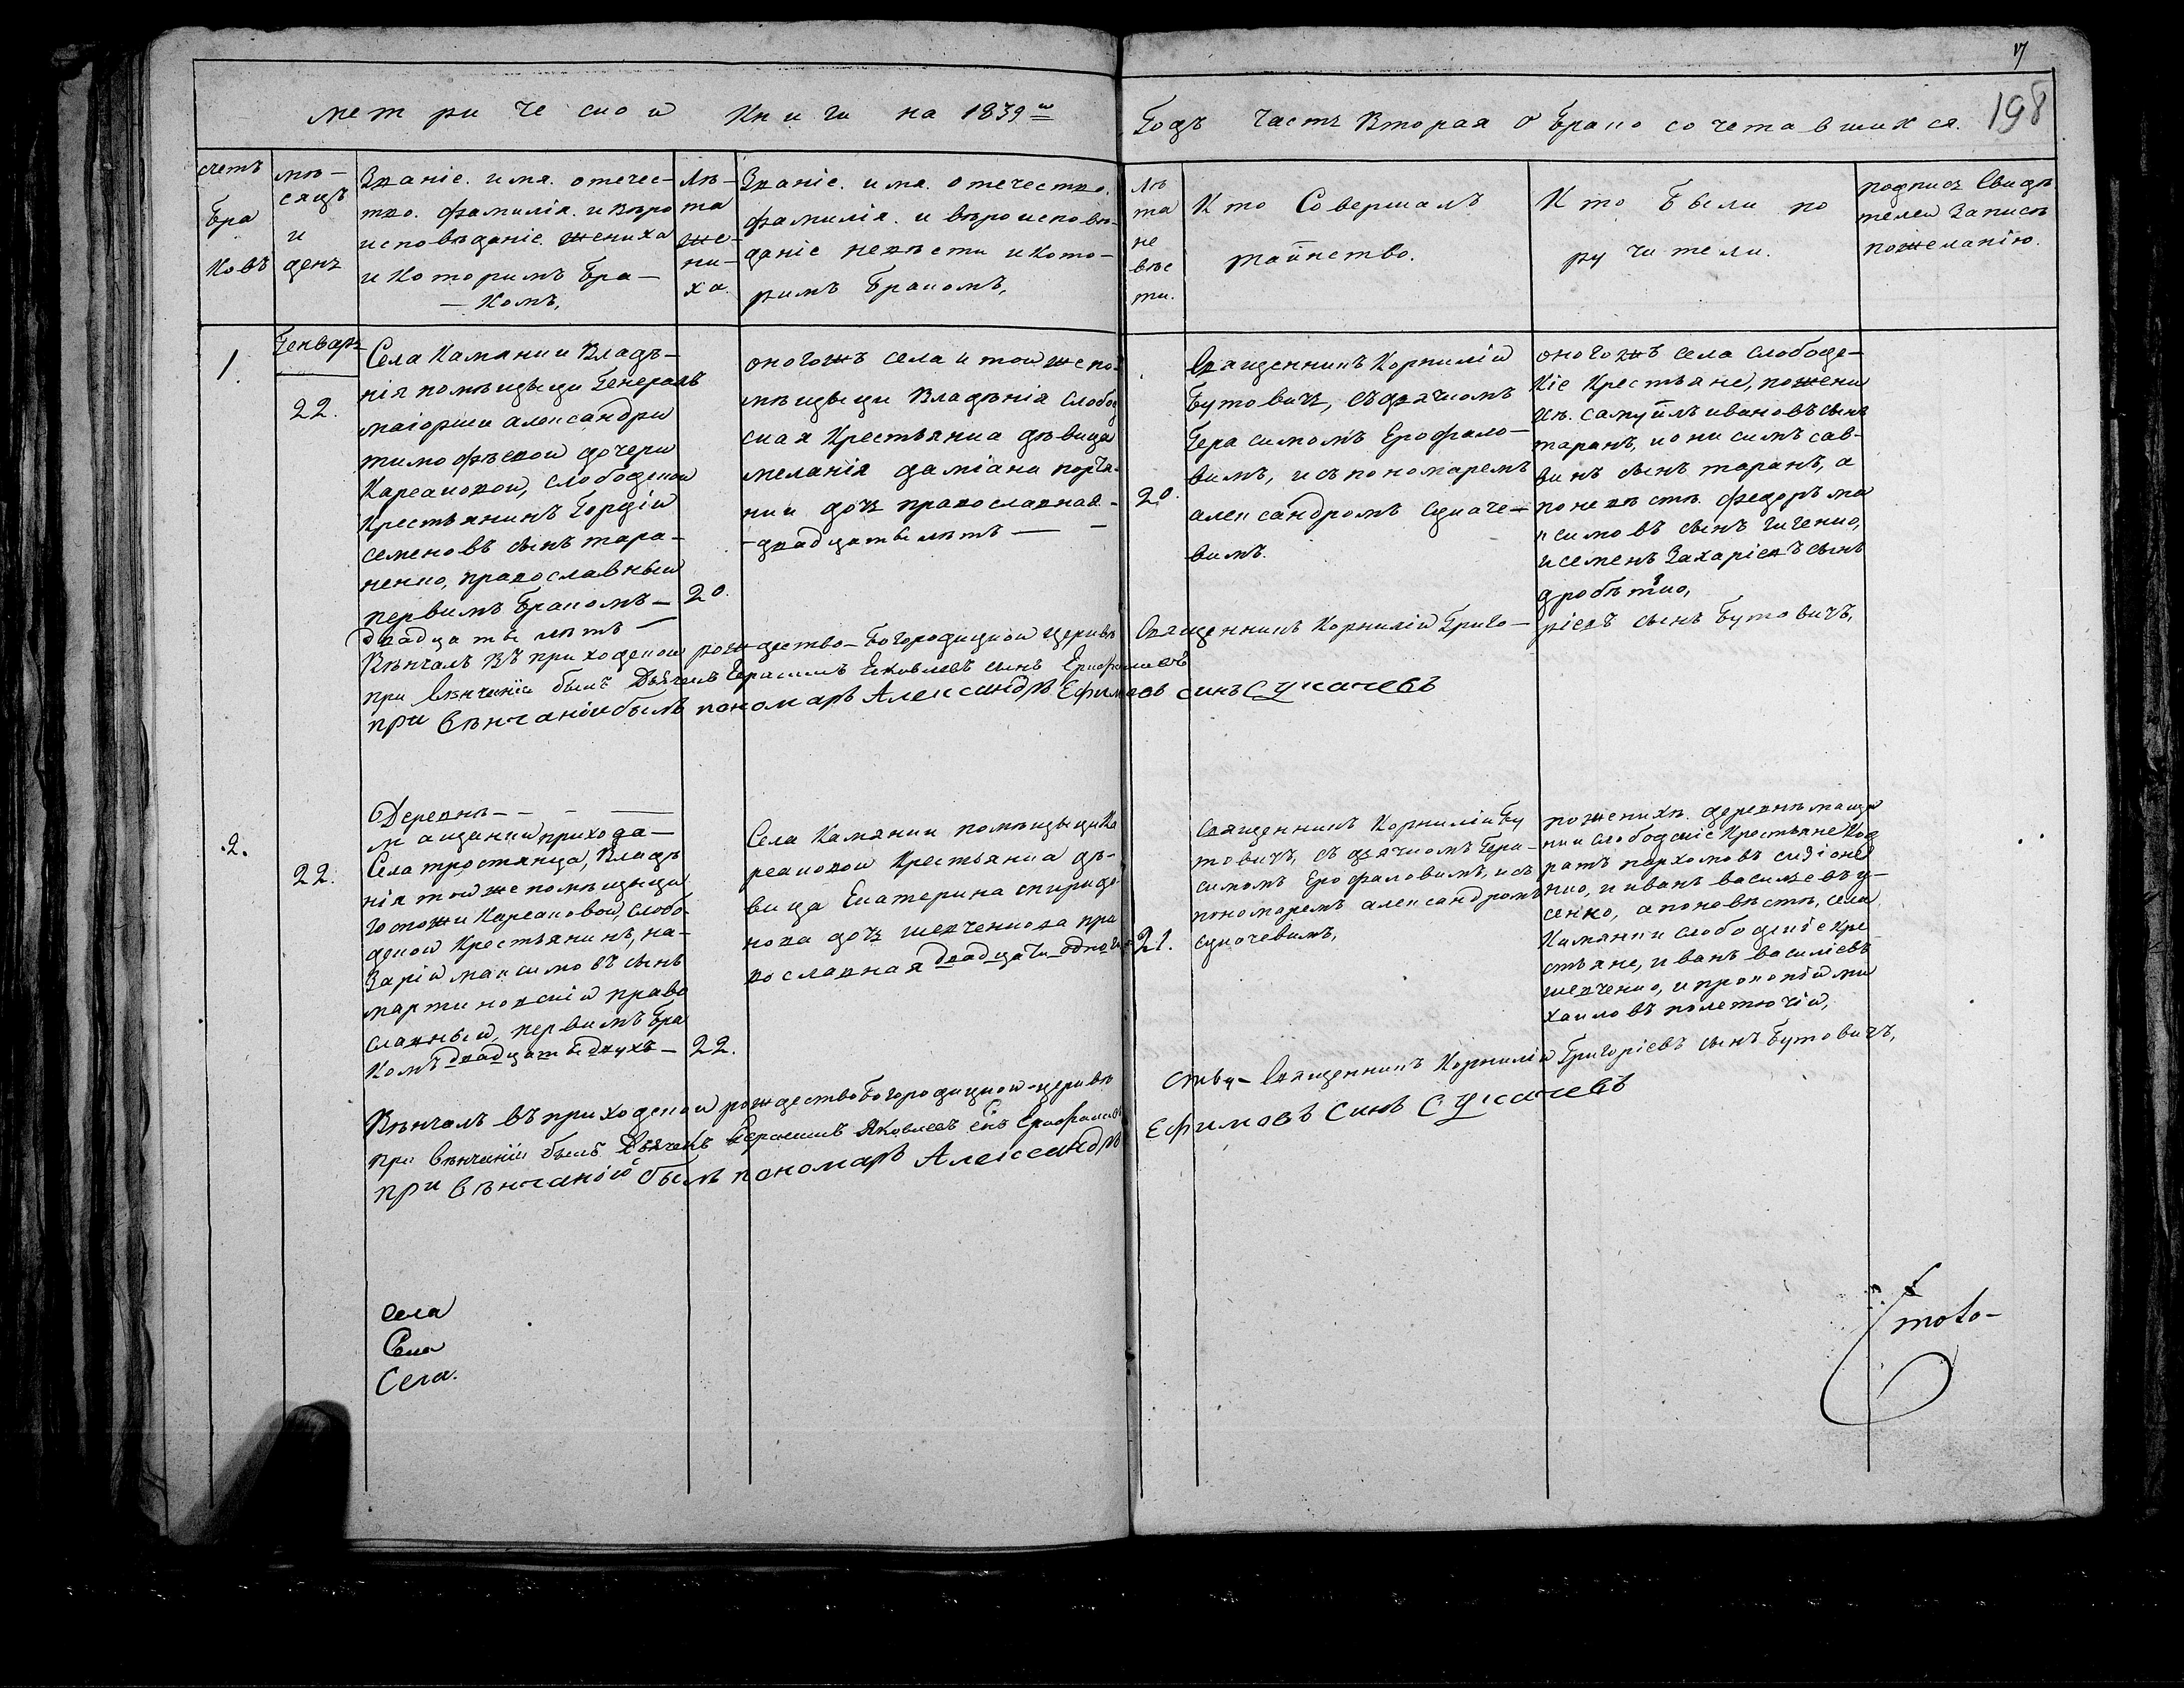 17
198
метрической Книги на 1839й
Годъ Часть Вторая О Бракосочетавшихся.
счетъ
бра
ковъ
мѣ-
сяцъ
и
день
Званіе. имя. отечес-
тво. фамилія. и вѣро
исповѣданіе жениха
и Которимъ бра-
-комъ,
Лѣ-
та
же-
ни-
ха.
Званіе. имя. отечество.
фамилія. и вѣроисповѣ-
даніе невѣсти и Кото-
римъ бракомъ,
Лѣ
та
не
вѣс
ти.
Кто Совершалъ
таинство.
Кто были по
ручители.
подпись Свидѣ
телей Записѣ
по желанію.
1
Генварь
22.
Села Камянки Владѣ-
нія помѣщыци Генералъ
маіорши александри
тимофѣевой дочери
Карсаковой, слободской
Крестьянинъ Гордій
семеновъ сынъ тара-
ненко, православный
первимъ бракомъ-
двадцаты лѣтъ-
20.
оногожъ села и той же по-
мѣщыци Владѣнія слобод
ская Крестьянка дѣвица
меланія даміана
доч православная-
-двадцаты лѣтъ-
20.
Священникъ Корнилій
Бутовичъ, съ дячкомъ
Герасимомъ Ерофало-
вимъ, и съ пономаремъ
александромъ Сукаче-
вимъ.
оногожъ села слободс-
кіе Крестьяне, по жени
хѣ. самуилъ ивановъ сынъ
таранъ, и онисимъ сав-
винъ сынъ таранъ, а
по невѣстѣ федоръ ма
ксимовъ сынъ гиченко,
и семенъ Захаріевъ сынъ
дробѣтко,
Вѣнчалъ въ приходской рождество-Богородицкой церквѣ Священникъ Корнилій Григо-ріевъ сынъ Бутовичъ,
при Вѣнчаніи былъ Дьячекъ Герасимъ Яковлевъ сынъ
при вѣнчаніи былъ пономарь Александръ Ефимовъ синъ Сукачевъ
.2.
22.
Деревнѣ-
прихода-
Села тростянца, Владѣ
нія той же помѣщыци
госпожи Карсаковой, слобо-
дской Крестьянинъ, на-
зарій максимовъ сынъ
мартиновскій право
славный, первимъ бра
комъ двадцаты двухъ-
22.
Села Камянки помѣщыци Ка
рсаковой Крестьянка дѣ-
вица Екатерина спиридо-
нова доч шевченкова пра
вославная двадцати одного
21.
Священникъ Корнилій Бу
товичъ, съ дячкомъ Гера-
симомъ Ерофаловимъ, и съ
пономаремъ александромъ
сукачевимъ,
по женихѣ. деревнѣ
слободскіе Крестьяне Код
ратъ пархомовъ
и иванъ васильевъ у-
сенко, а по невѣстѣ, села
Камянки слободскіе кре
стьяне, иванъ василіевъ
шевченко, и прокопій ми
хаиловъ
Вѣнчалъ въ приходской рождество Богородицкой-церквѣ Священникъ Корнилій Григоріевъ сынъ Бутовичъ,
при вѣнчаніи былъ Дьячекъ Герасимъ Яковлевъ
при вѣнчаніи былъ пономарь Александръ Ефимовъ синъ Сукачевъ
села
Села
Села.